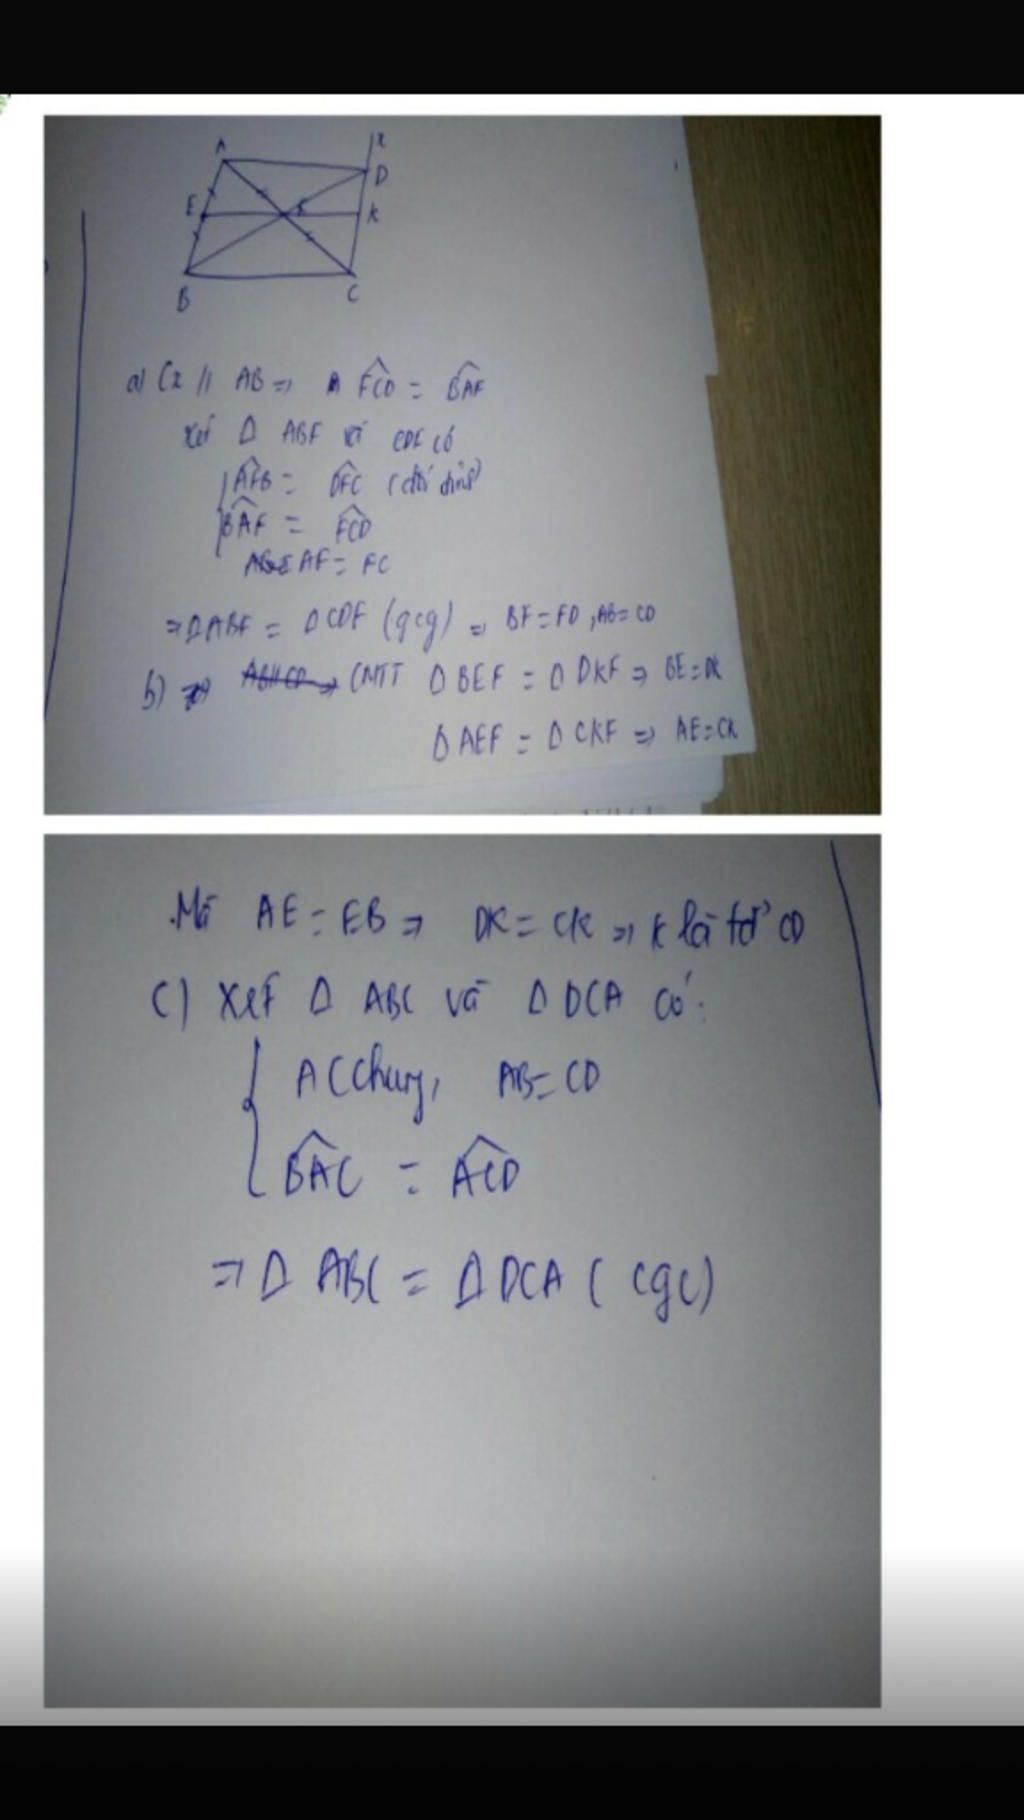 A
x
D
E
F
K
B
C
a) Cx // AB => A FCD = BAF
Xét Δ ABF và CDF có
AFB = DFC (đối đỉnh)
BAF = FCD
AF = FC
=> Δ ABF = Δ CDF (gcg) => BF = FD, AB = CD
b) => AB // CD => CMTT Δ BEF = Δ DKF => BE = DK
Δ AEF = Δ CKF => AE = CK
Mà AE = EB => DK = CK => K là tđ CD
c) Xét Δ ABC và Δ DCA có:
AC chung, AB = CD
BAC = ACD
=> Δ ABC = Δ DCA (cgc)